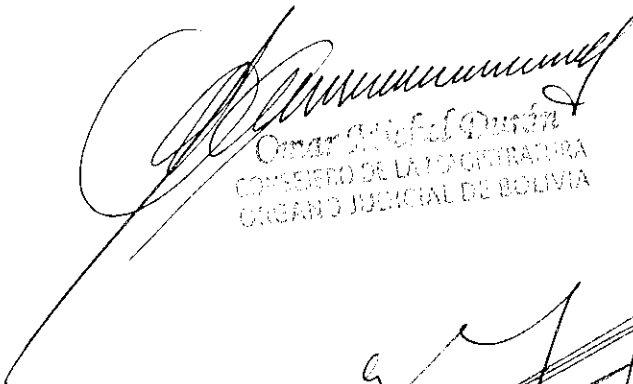 Omar Michel Durán
CONSEJERO DE LA MAGISTRATURA
ORGANO JUDICIAL DE BOLIVIA